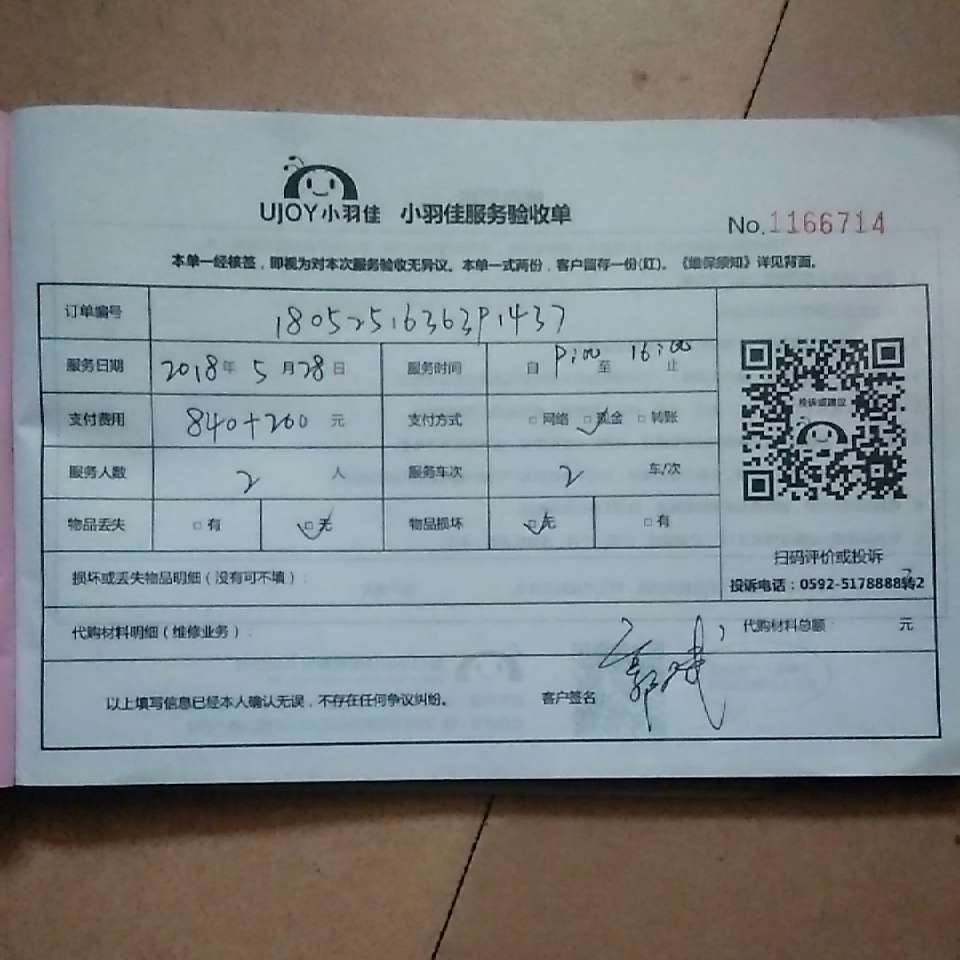 UJOY小羽佳 小羽佳服务验收单
No.1166714
本单一经核签，即视为对本次服务验收无异议。本单一式两份，客户留存一份(红)。《维保须知》详见背面。
订单编号 1805251636391437
服务日期 2018年 5月28日 服务时间 自 9:00 至 16:00 止
支付费用 840+200 元 支付方式 □网络 □现金 □转账
服务人数 2 人 服务车次 2 车/次
物品丢失 □有 □无 物品损坏 □无 □有
投诉或建议
扫码评价或投诉
投诉电话：0592-5178888转2
损坏或丢失物品明细（没有可不填）：
代购材料明细（维修业务）： 代购材料总额 元
以上填写信息已经本人确认无误，不存在任何争议纠纷。 客户签名